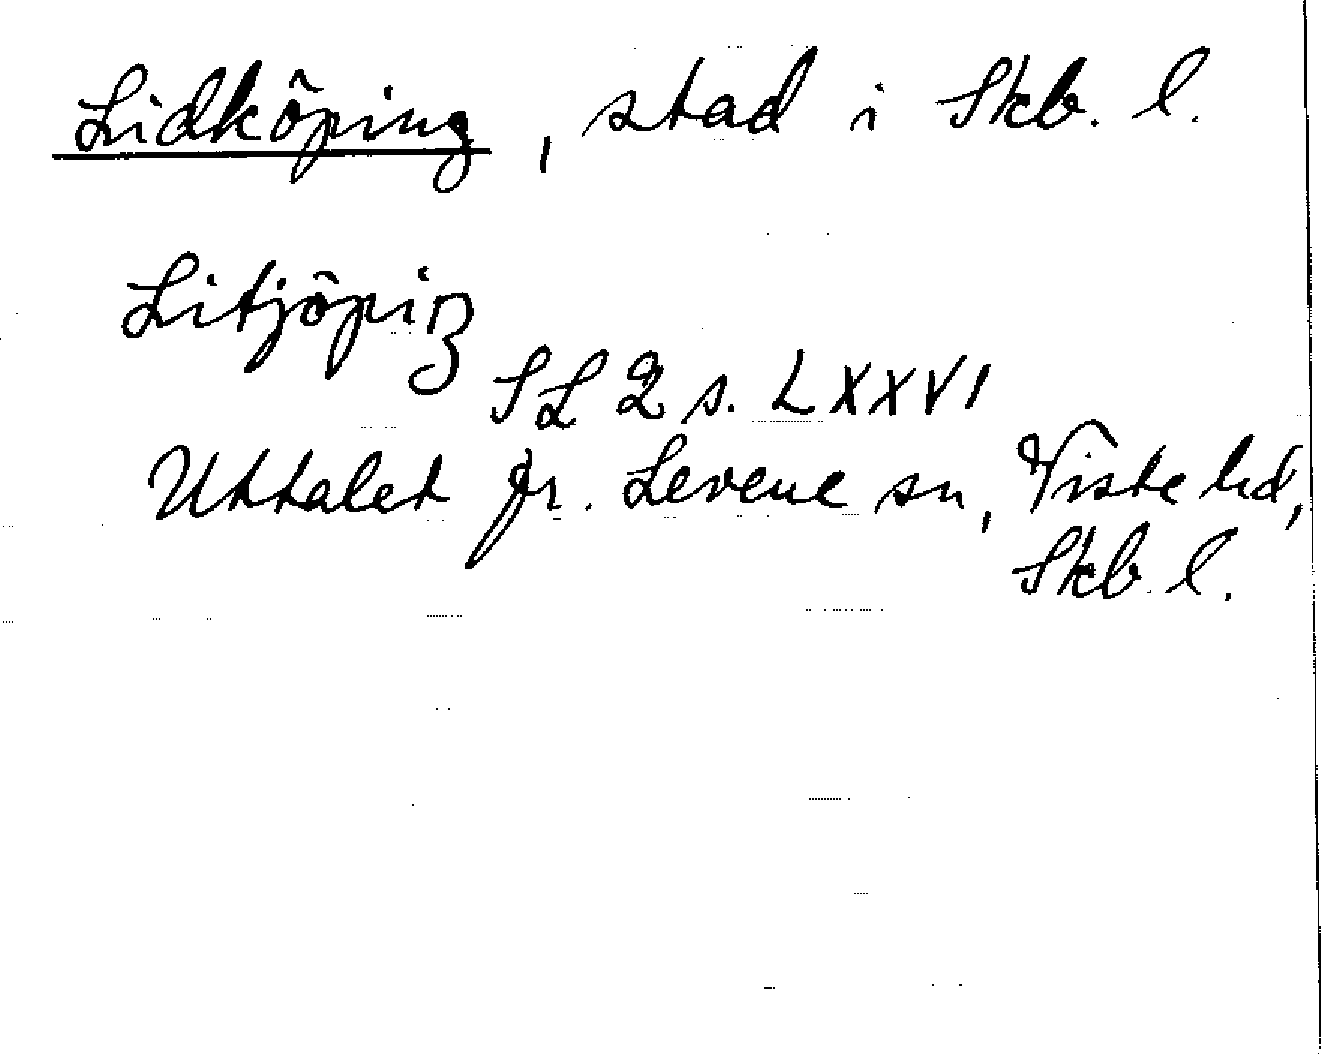 Lidköping, stad i Skb. l.
Litjöpiŋ
SL 2 s. LXXVI
Uttalet fr. Levene sn, Viste hd,
Skb. l.